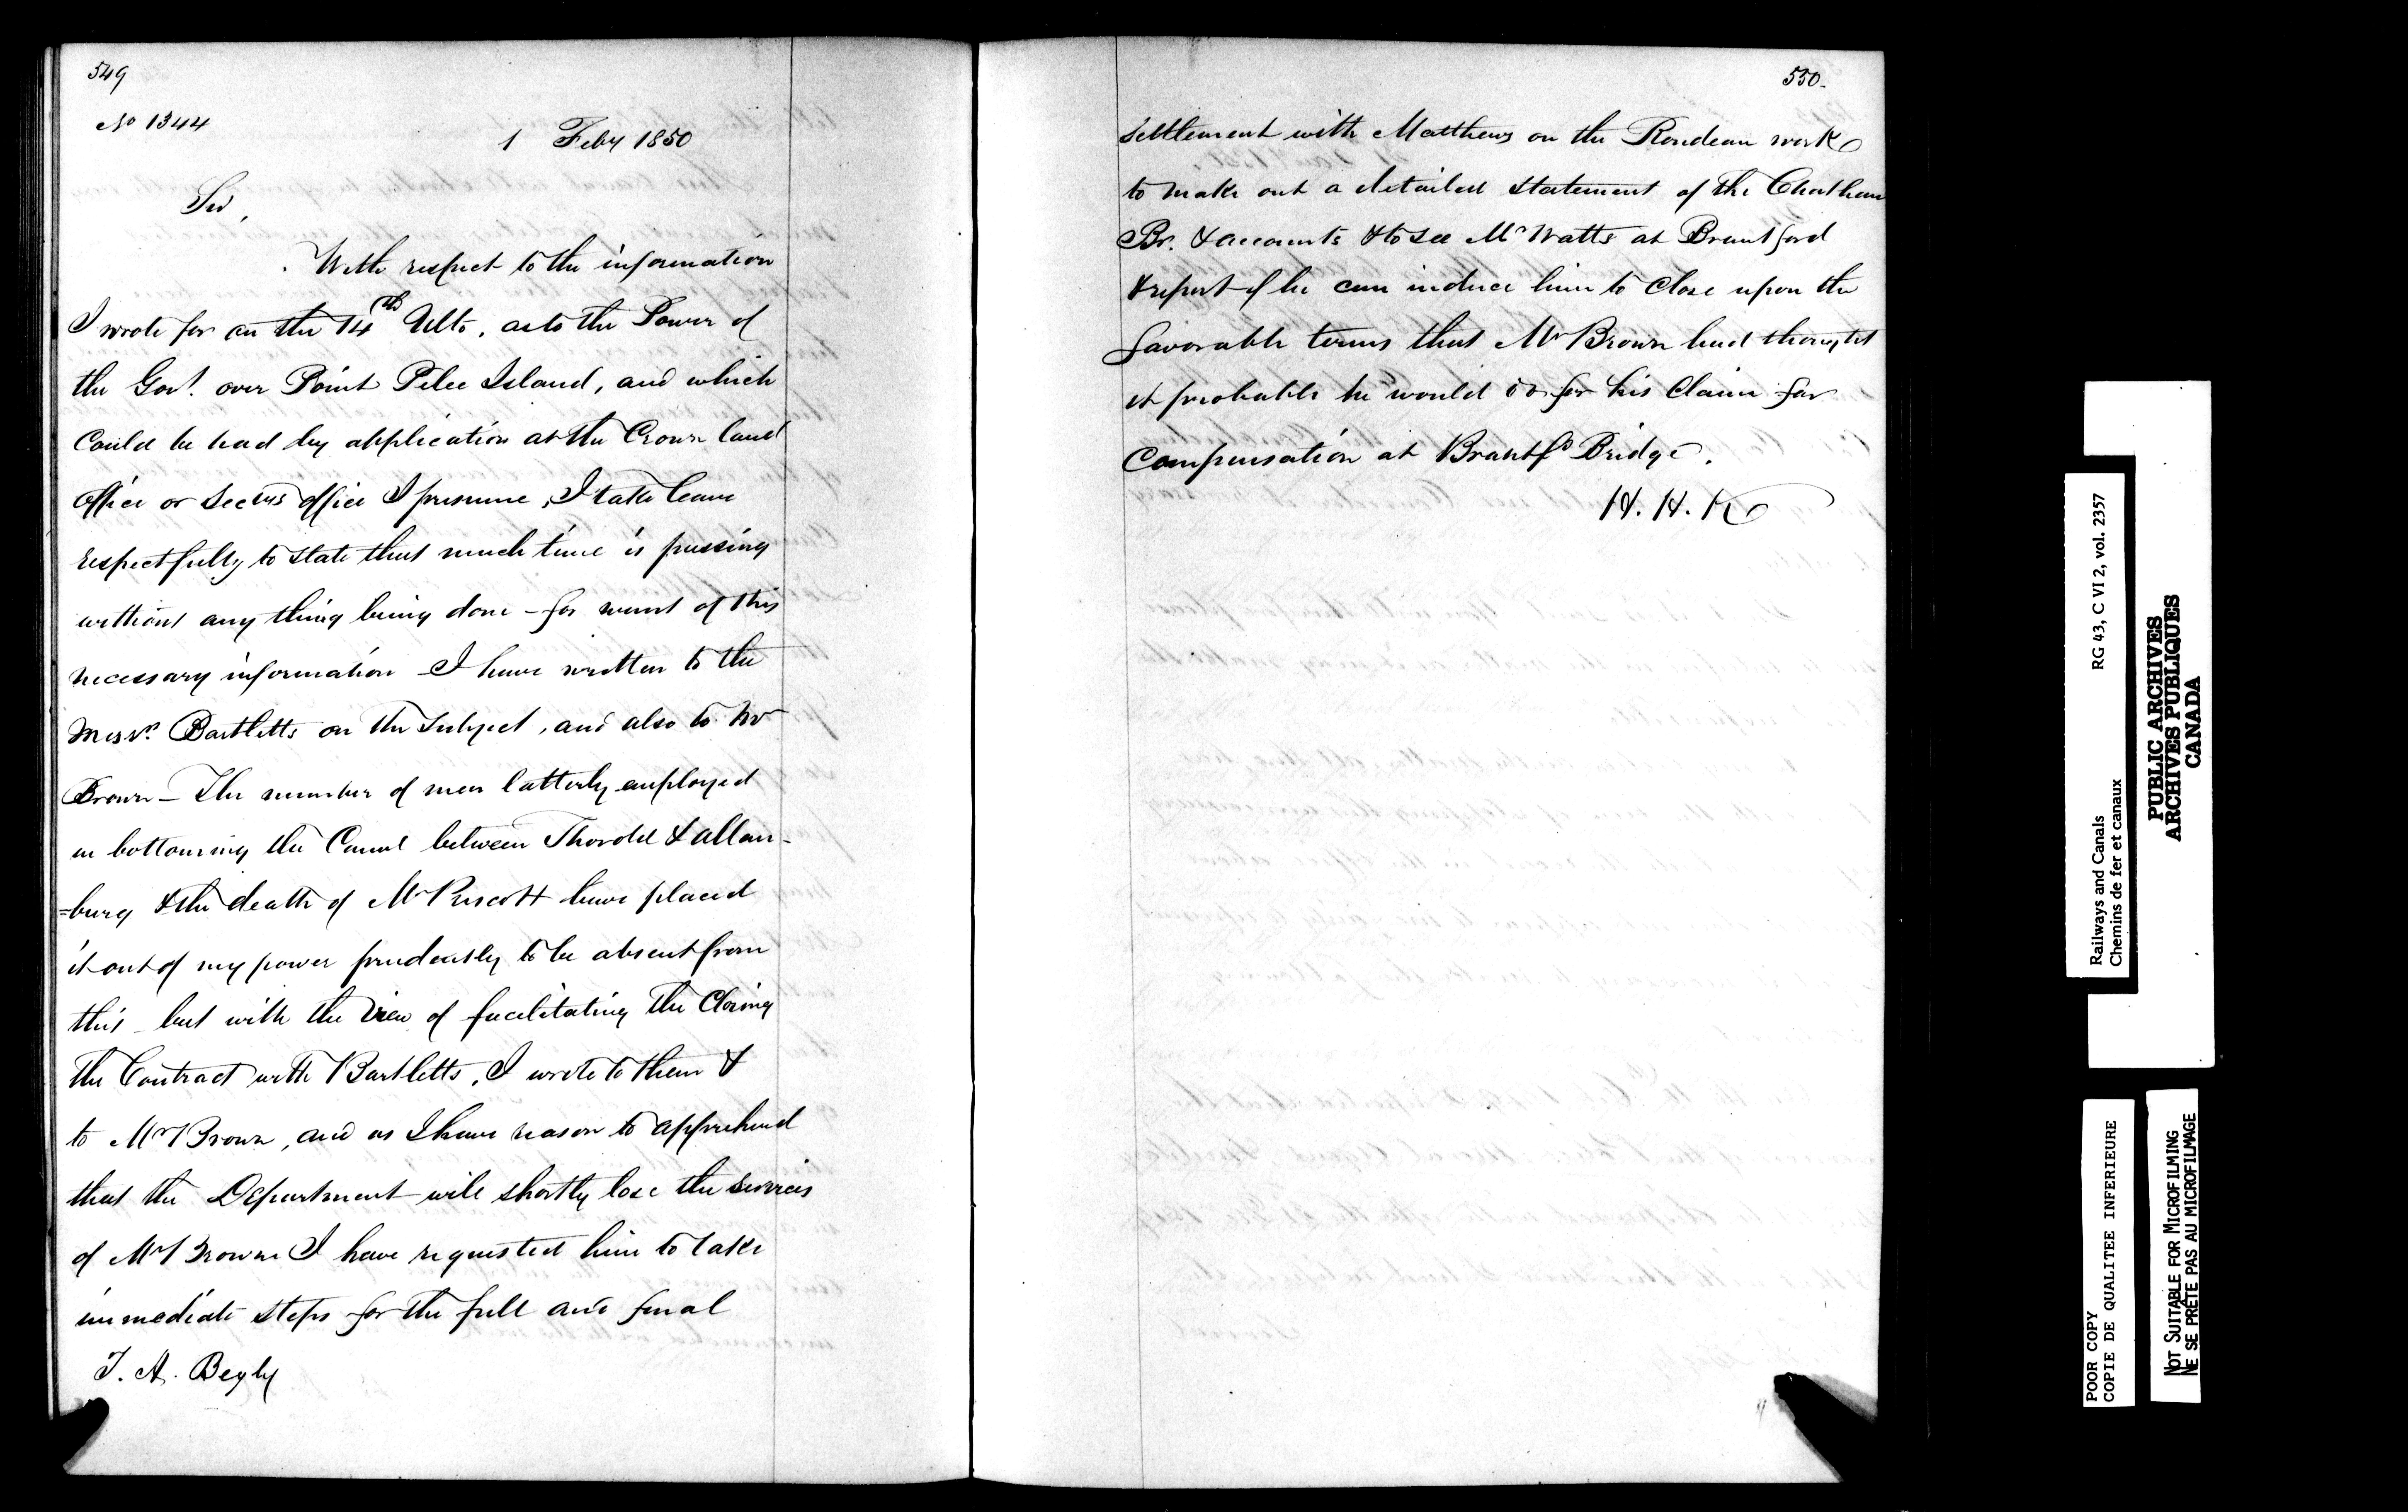 549
No 1344
1 Feby 1850
Sir,
With respect to the information
I wrote for on the 14th Ulto. as to the Power of
the Govt. over Point Pelee Island, and which
Could be had by application at the Crown land
Office or Secys office I presume, I take leave
respectfully to state that much time is passing
without any thing being done - for want of this
necessary information I have written to the
Messrs. Bartletts on the Subject, and also to Mr
Brown - The number of men latterly employed
in bottoming the Canal between Thorold & Allan-
=burg & the death of Mr Prescott have placed
it out of my power prudently to be absent from
this but with the view of facilitating the Closing
the Contract with Bartletts, I wrote to them &
to Mr Brown, and as I have reason to apprehend
that the Department will shortly lose the Services
of Mr Brown I have requested him to take
immediate steps for the full and final
T. A. Begly
550.
Settlement with Matthews on the Rondeau work
to make out a detailed Statement of the Chatham
Br. & accounts & to see Mr Watts at Brantford
& report if he can induce him to Close upon the
favorable terms that Mr Brown had thought
it probable he would do for his Claim for
Compensation at Brantfd Bridge.
H. H. K
Railways and Canals RG 43, C VI 2, vol. 2357
Chemins de fer et canaux
PUBLIC ARCHIVES
ARCHIVES PUBLIQUES
CANADA
POOR COPY
COPIE DE QUALITEE INFERIEURE
NOT SUITABLE FOR MICROFILMING
NE SE PRÊTE PAS AU MICROFILMAGE